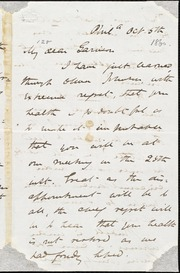 Phila Oct 5th
1860
My dear Garrison
I have just learned
through Oliver Johnson with
extreme regret, that your
health is so doubtful as
to make it improbable
that you will be at
our meeting on the 25th
inst. Great as the dis-
appointment will be to
all, the chief regret will
be to hear that your health
is not restored as we
had fondly hoped.